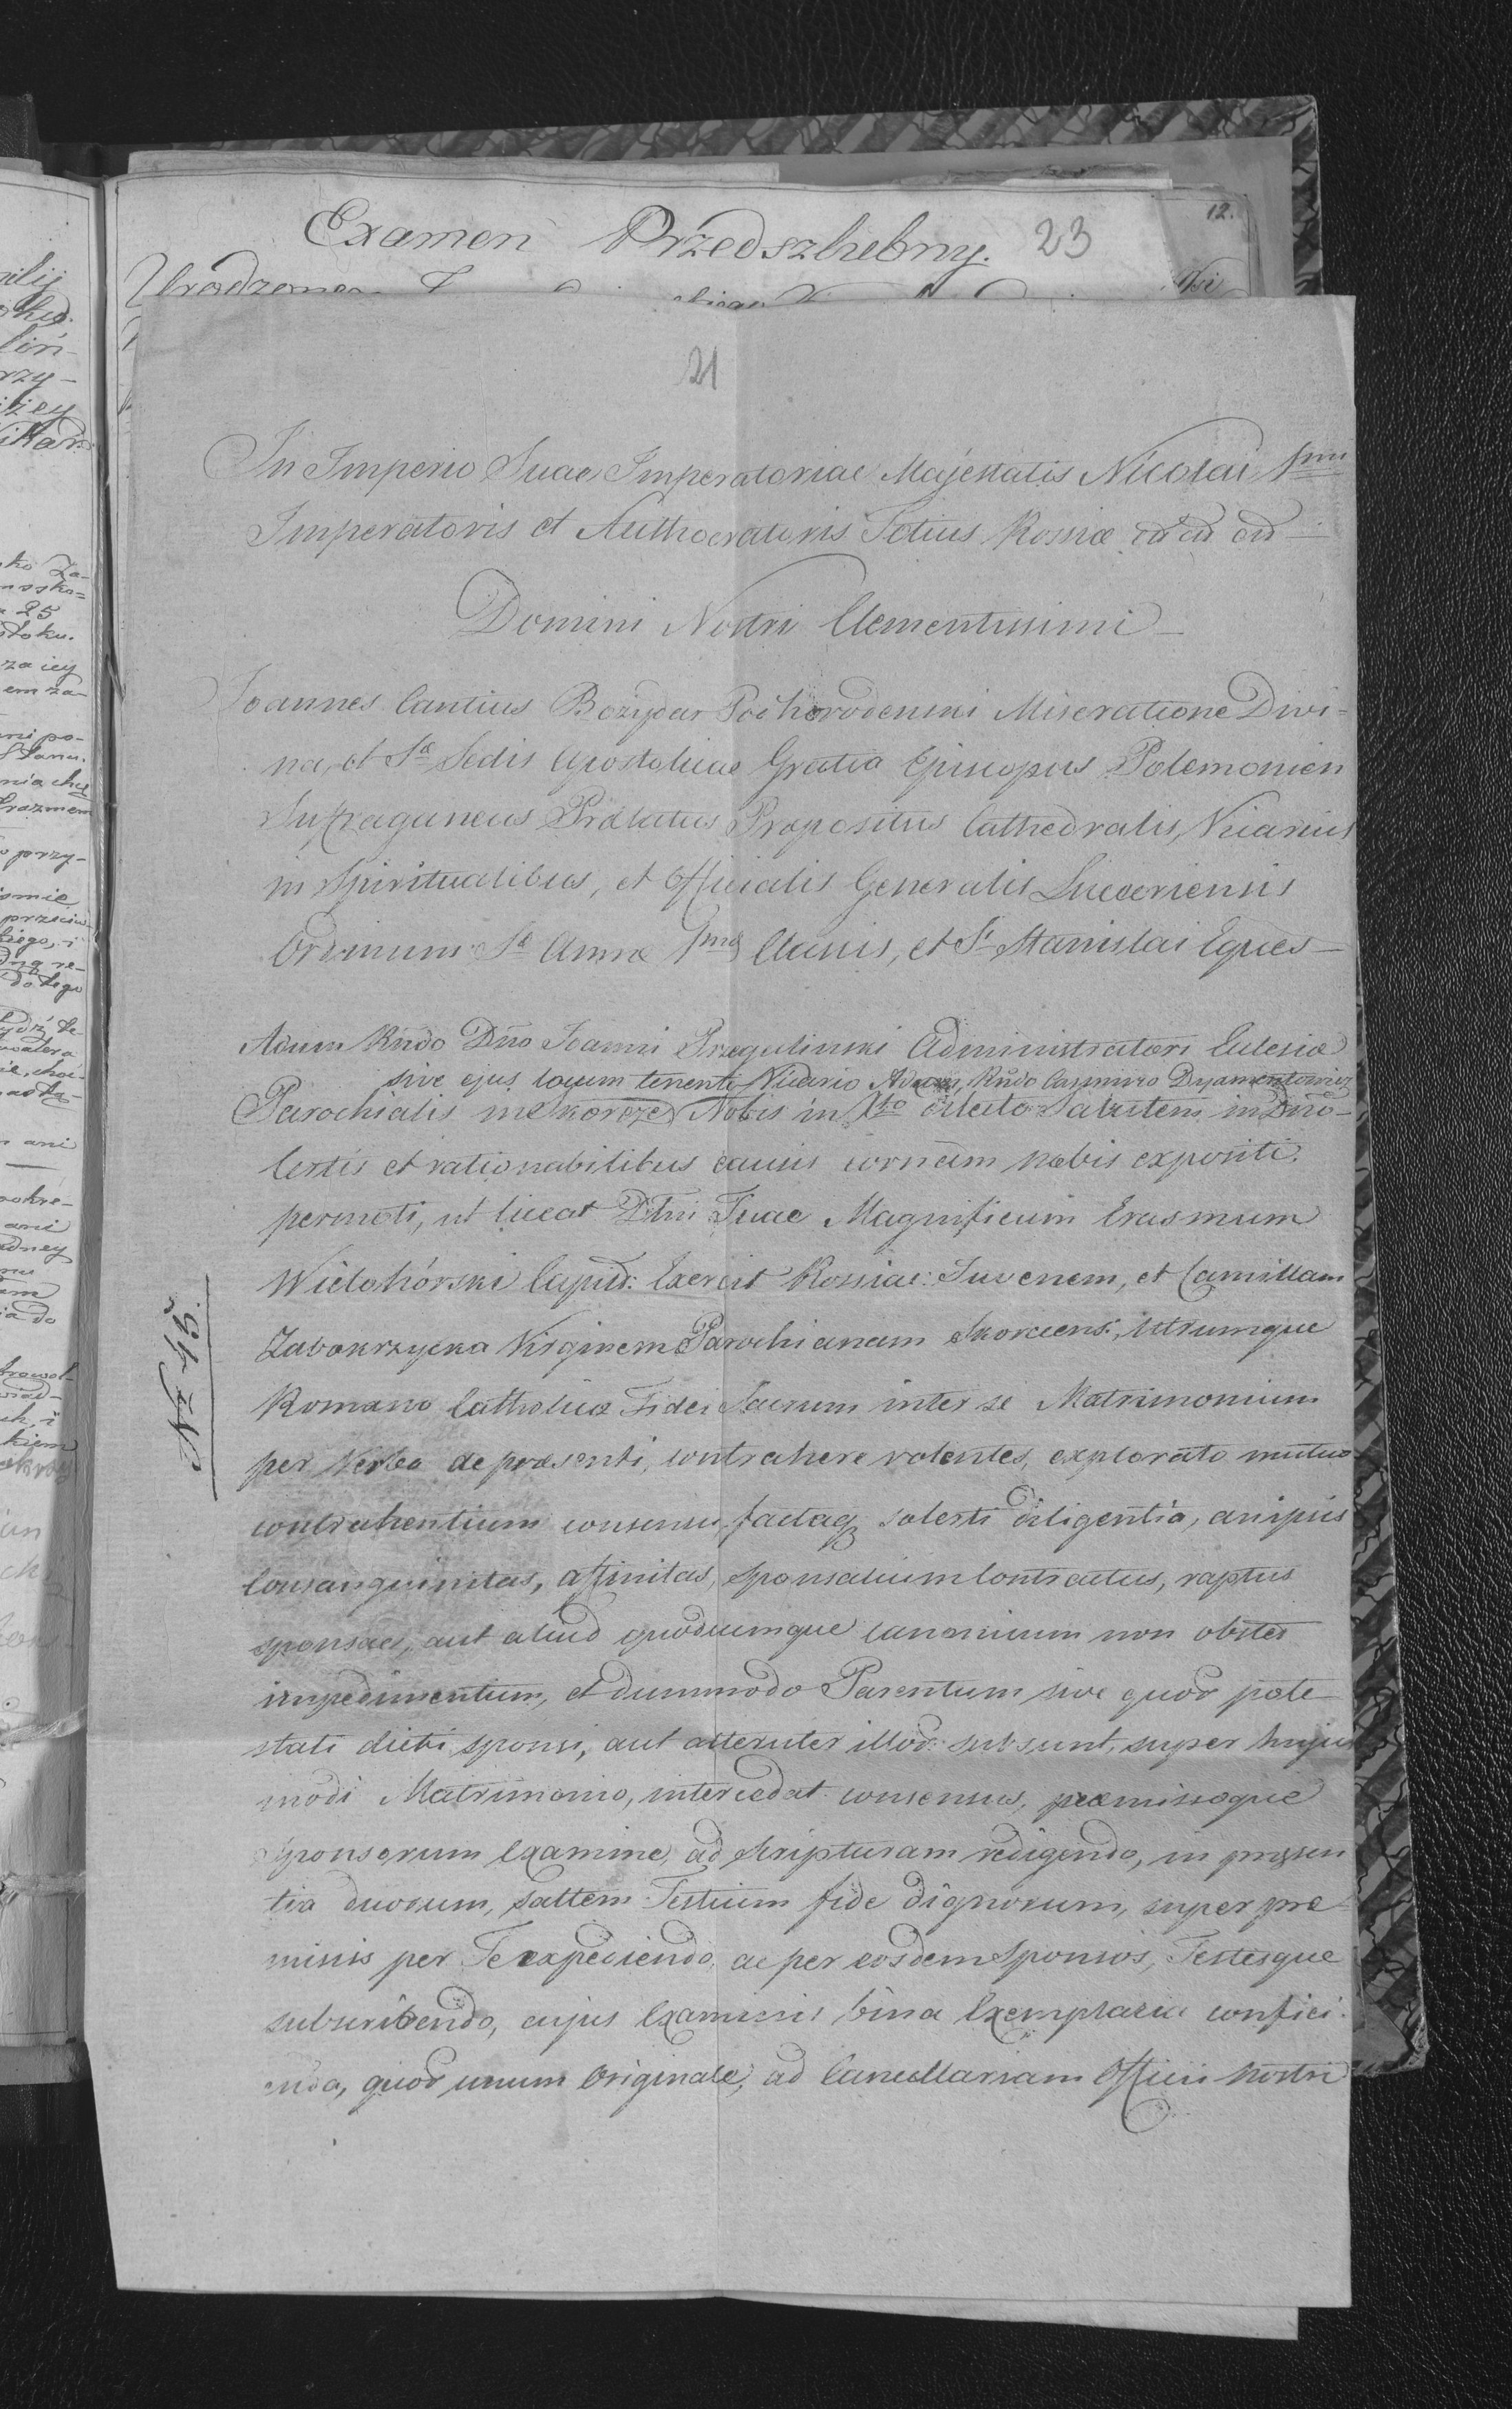 Examen Przedszlubny. 23
12.
21
In Imperio Suae Imperatoriae Majestatis Nicolai 1mi
Imperatoris et Authocratoris Totius Rossiæ
Domini Nostri Clementissimi
Joannes Cantius Bożydar Podhorodenski Miseratione Divi-
na, et Sæ Sedis Apostolicae Gratia Episcopus Polemonien
Sufraganeus Prælatus Præpositus Cathedralis, Vicarius
in Spiritualibus, et Officialis Generalis Luceoriensis
Ordinum Sæ Annæ 1mæ Classis, et St Stanislai Eques
Adum Rndo Dno Joanni Administratori Eclesiæ
sive ejus locum tenenti Vicario Rndo Casimiro Dyamentowicz
Parochialis in Skorcze Nobis in Xto dilecto Salutem in Dno
Certis et rationabilibus causis coram nobis expositi.
permoti, ut liceat Dtni Tuae Magnificum Erasmum
Wielohórski Exercit Rossiae: Juvenem, et Camillam
Zabokrzycka Virginem Parochianam Skorcens:, Utrumque
Romano Catholicæ Fidei Sacrum inter se Matrimonium
per Verba de præsenti, contrahere volentes, explorato mutuo
contrahentium consensu, factaq solerti diligentia, an ipsis
Consanguinitas, affinitas, Sponsalium Contractus, raptus
sponsae, aut aliud quodcumque canonicum non obstet
impedimentum, et dummodo Parentum sive quor pote
stati dicti sponsi, aut alteruter illor: subsunt, super hujus
modi Matrimonio, intercedat consensus, præmissoque
Sponsorum Examine, ad Scripturam redigendo, in præsen
tia duorum, saltem Testium fide dignorum, super præ-
missis per Te expediendo, ac per eosdem Sponsos, Testesque
subscribendo, cujus Examinis bina Exemplaria confici-
enda, quor unum Originale, ad Cancellariam Officii Nostri